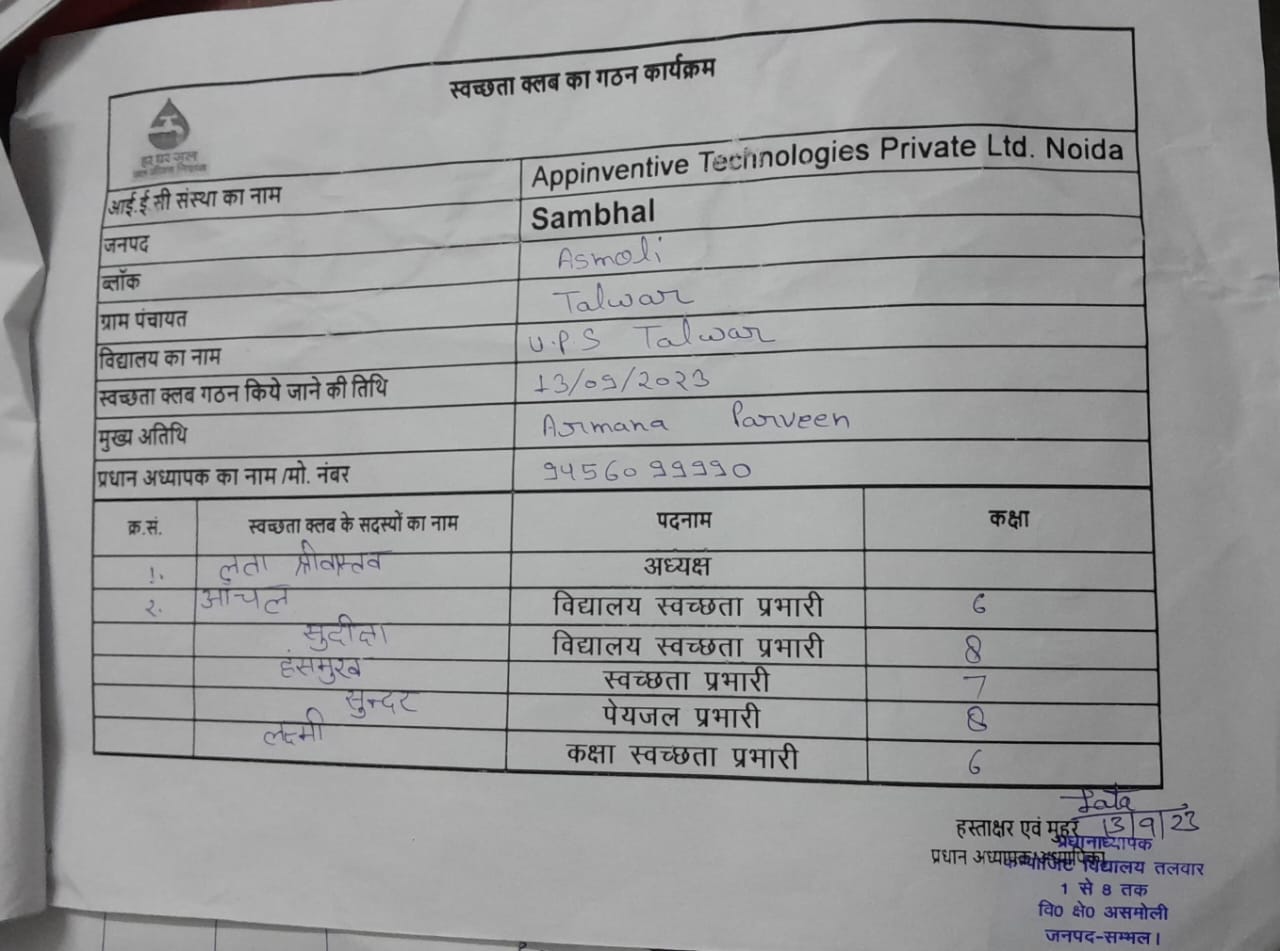 स्वच्छता क्लब का गठन कार्यक्रम
हर घर जल
जल जीवन मिशन
आई.ई.सी संस्था का नाम Appinventive Technologies Private Ltd. Noida
जनपद Sambhal
ब्लॉक Asmoli
ग्राम पंचायत Talwar
विद्यालय का नाम U.P.S Talwar
स्वच्छता क्लब गठन किये जाने की तिथि 13/09/2023
मुख्य अतिथि Armana Parveen
प्रधान अध्यापक का नाम /मो. नंबर 9456099990
क्र.सं. स्वच्छता क्लब के सदस्यों का नाम पदनाम कक्षा
१. लता श्रीवास्तव अध्यक्ष
२. आँचल विद्यालय स्वच्छता प्रभारी 6
सुदीक्षा विद्यालय स्वच्छता प्रभारी 8
हंसमुख स्वच्छता प्रभारी 7
सुन्दर पेयजल प्रभारी 8
लक्ष्मी कक्षा स्वच्छता प्रभारी 6
Lata
हस्ताक्षर एवं मुहर 13/9/23
प्रधानाध्यापक
प्रधान अध्यापक/अध्यापिका
विद्यालय तलवार
1 से 8 तक
वि0 क्षे0 असमोली
जनपद-सम्भल।